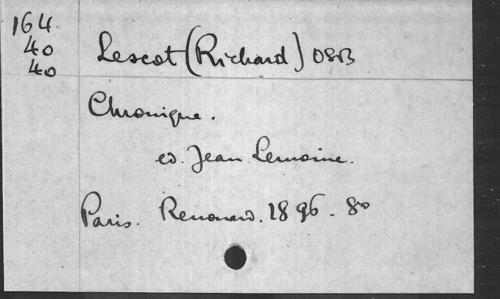 164
40
40
Lescot (Richard) OSB
Chronique.
ed. Jean Lemoine.
Paris. Renouard. 1896. 8o